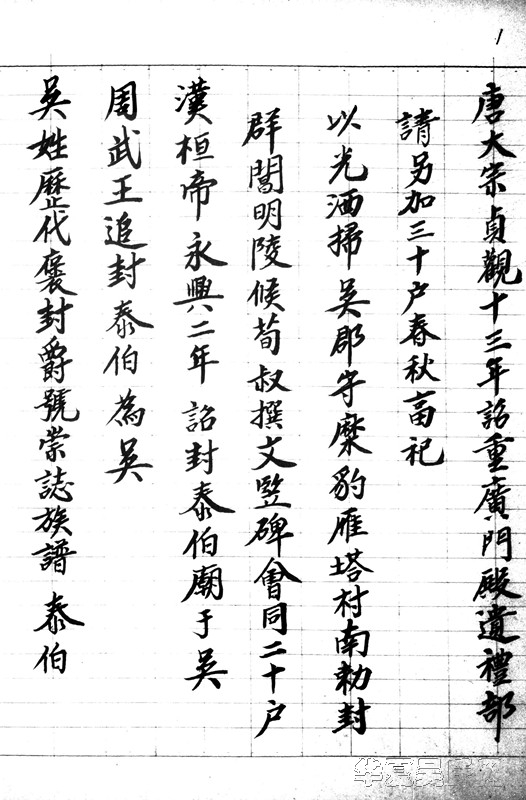 1
吳姓歷代褒封爵號榮誌族譜 泰伯
周武王追封泰伯為吳
漢桓帝永興二年 詔封泰伯廟于吳
群閶明陵候荀叔撰文竪碑會同二十户
以光洒掃吳郡守糜豹雁塔村南勅封
請另加三十户春秋畜祀
唐大宗貞觀十三年詔重廣門殿遺禮部
华夏吴